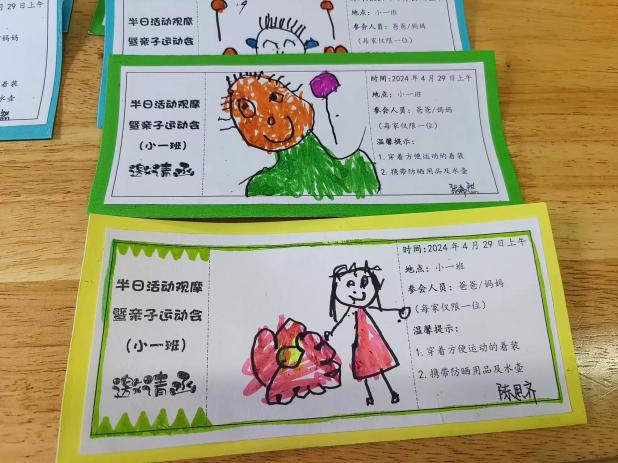 半日活动观摩
暨亲子运动会
时间:2024年4月29日上午
地点:小一班
参会人员:爸爸/妈妈
(每家仅限一位)
半日活动观摩
暨亲子运动会
(小一班)
邀请函
时间:2024年4月29日上午
地点:小一班
参会人员:爸爸/妈妈
(每家仅限一位)
温馨提示:
1.穿着方便运动的着装
2.携带防晒用品及水壶
半日活动观摩
暨亲子运动会
(小一班)
邀请函
时间:2024年4月29日上午
地点:小一班
参会人员:爸爸/妈妈
(每家仅限一位)
温馨提示:
1.穿着方便运动的着装
2.携带防晒用品及水壶
陈思齐